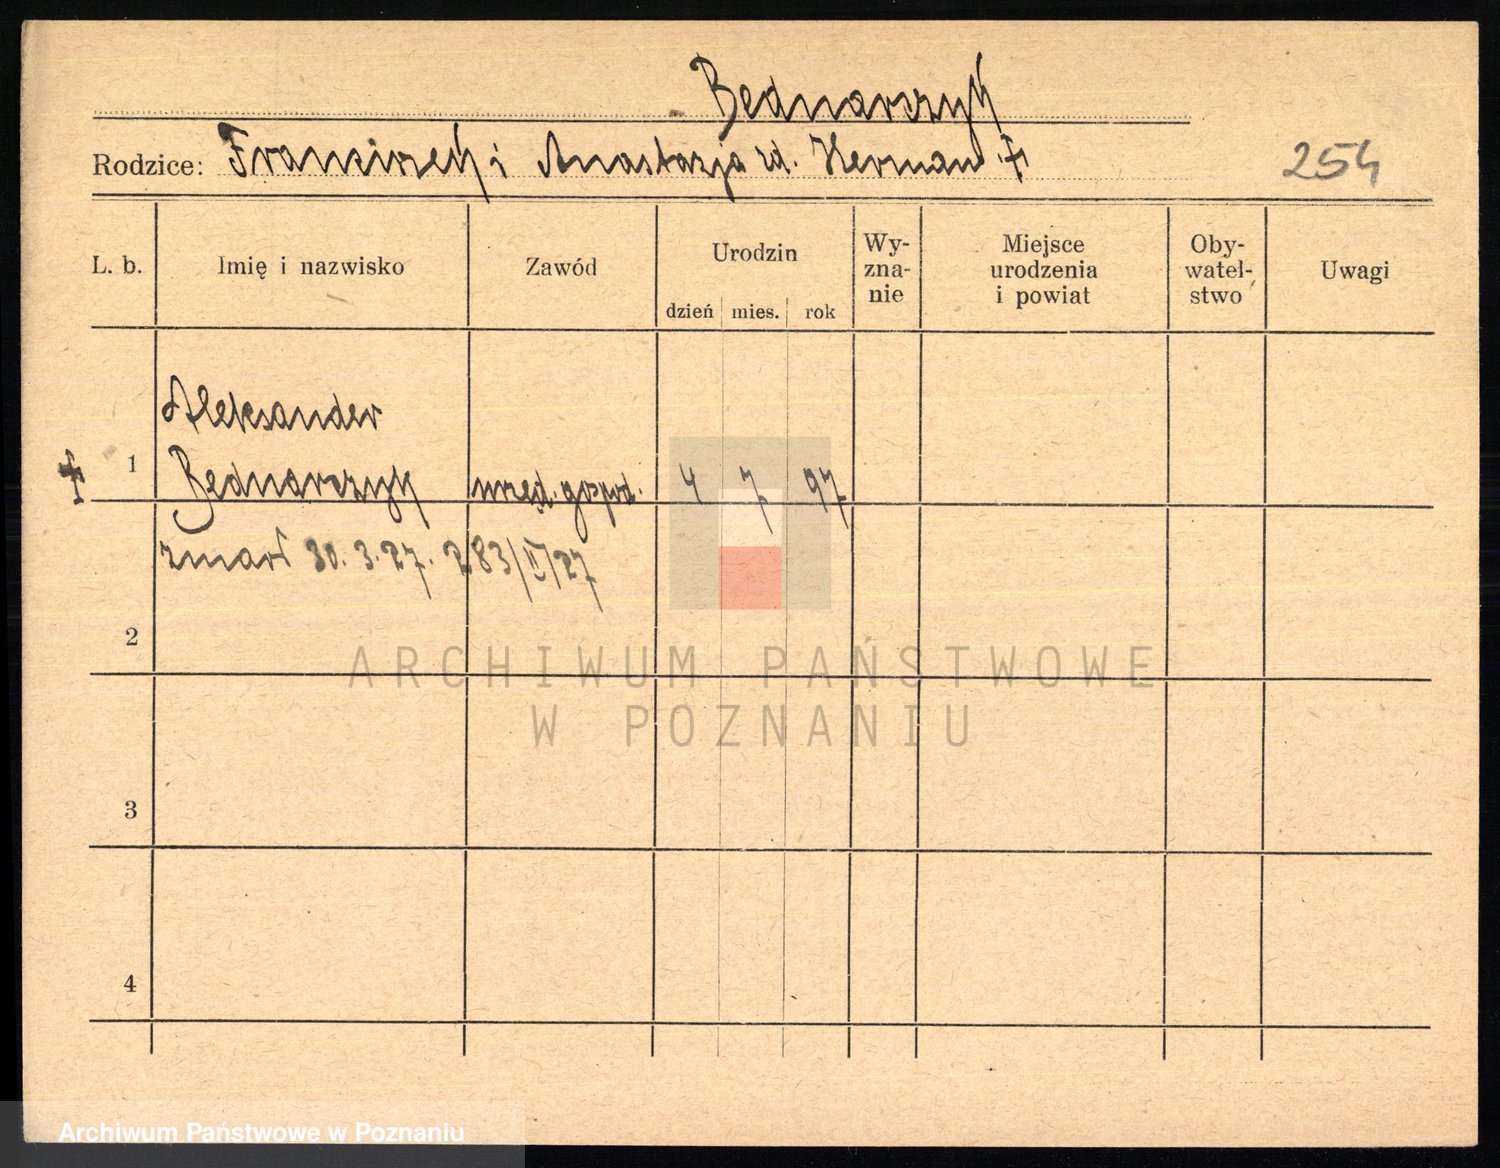 Bednarczyk
Rodzice: Franciszek i Anastazja zd. Herman
254
L. b.
Imię i nazwisko
Zawód
Urodzin
dzień mies. rok
Wy-
zna-
nie
Miejsce
urodzenia
i powiat
Oby-
watel-
stwo
Uwagi
Aleksander
1 Bednarczyk urzęd. gospod. 4 7 97
zmarł 30. 3. 27. 283/II/27
2
3
4
ARCHIWUM PAŃSTWOWE
W POZNANIU
Archiwum Państwowe w Poznaniu